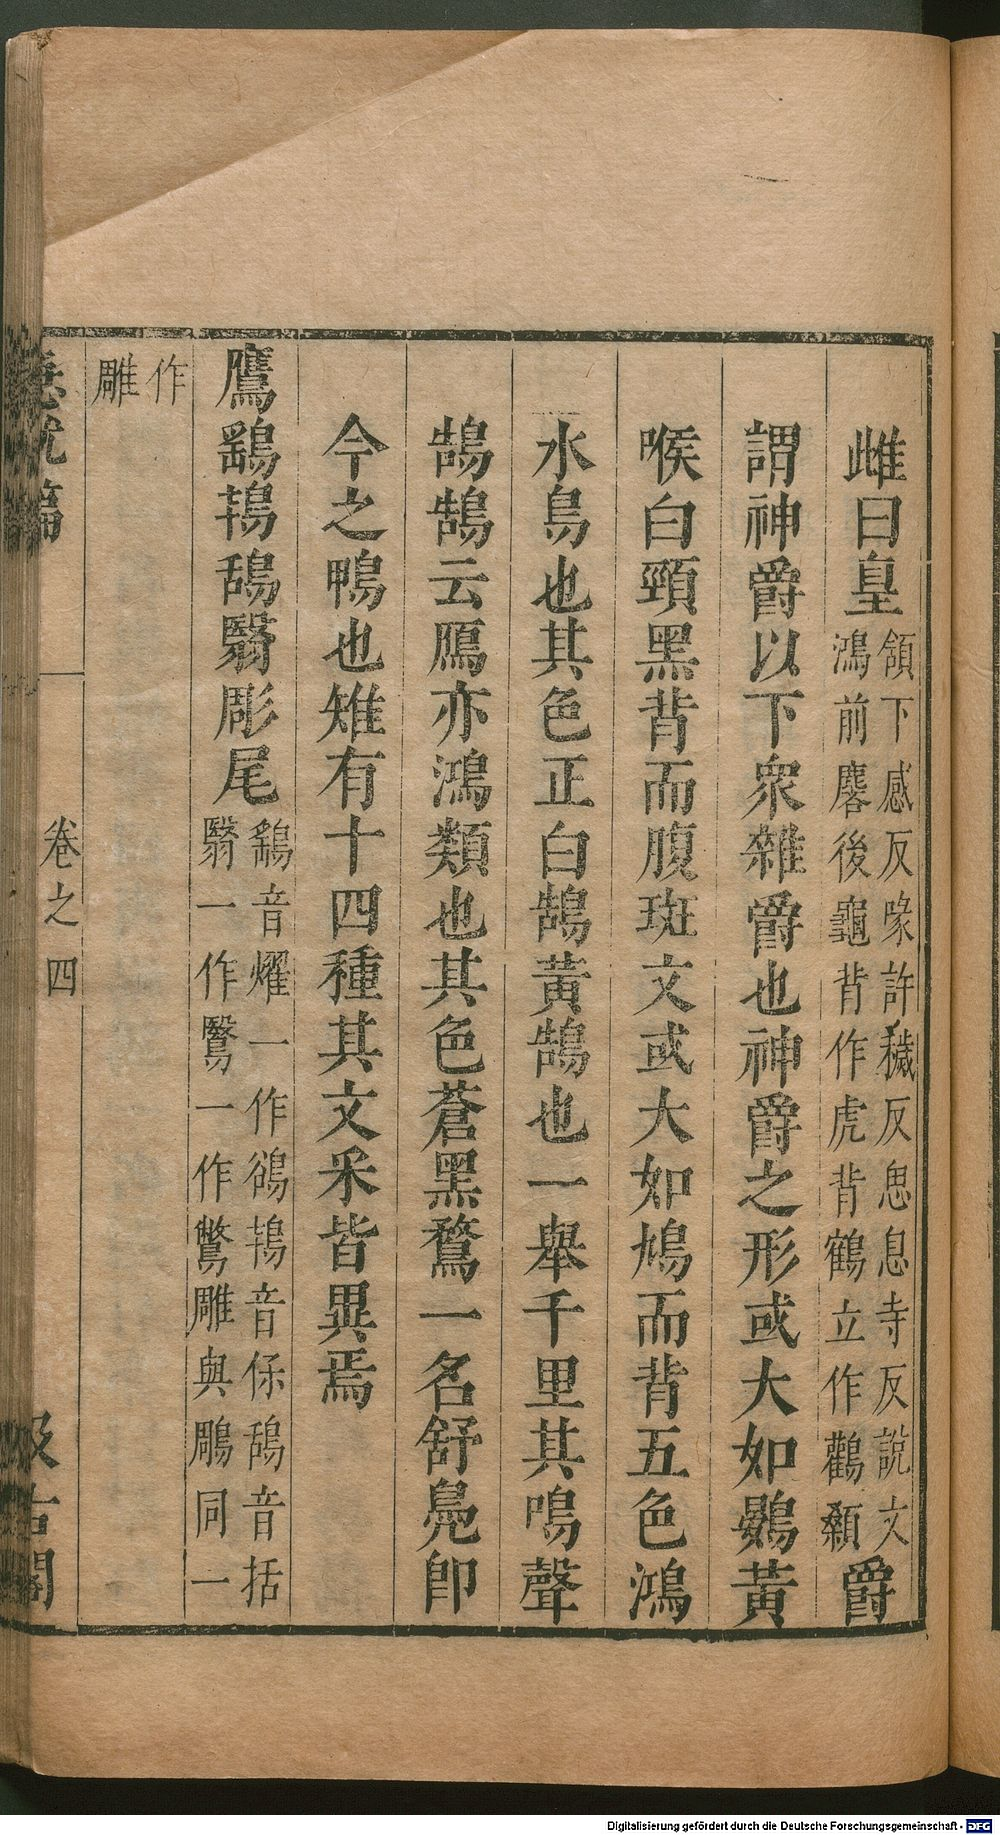 雌曰皇
頷下感反喙許穢反思息寺反說文
鴻前麐後龜背作虎背鶴立作鸛顙
爵
謂神爵以下衆雜爵也神爵之形或大如鷃黃
喉白頸黑背而腹斑文或大如鳩而背五色鴻
水鳥也其色正白鵠黃鵠也一舉千里其鳴聲
鵠鵠云鴈亦鴻類也其色蒼黑鶩一名舒鳧卽
今之鴨也雉有十四種其文采皆異焉
鷹鷂鴇鴰翳彫尾
鷂音燿一作鵒鴇音保鴰音括
翳一作鷖一作鷩雕與鵰同一
作
雕
急就篇
卷之四
汲古閣
Digitalisierung gefördert durch die Deutsche Forschungsgemeinschaft - DFG